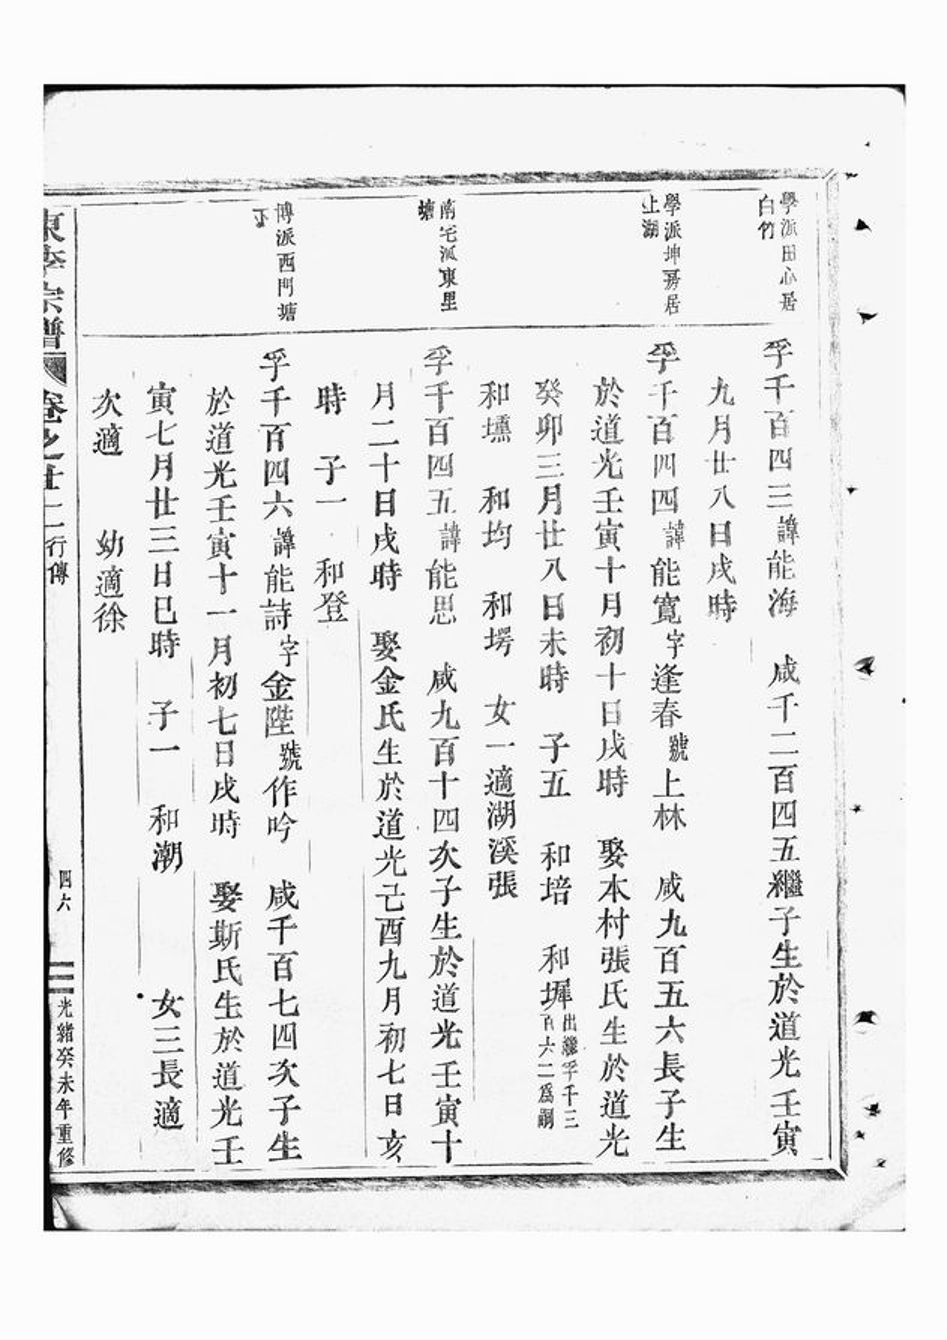 學派田心居
白竹
孚千百四三諱能海　咸千二百四五繼子生於道光壬寅
九月廿八日戌時
學派坤房居
上湖
孚千百四四諱能寬字逢春號上林　咸九百五六長子生
於道光壬寅十月初十日戌時　娶本村張氏生於道光
癸卯三月廿八日未時　子五　和培　和墀出繼孚千三
百六二爲嗣
和壎　和均　和塄　女一適湖溪張
南宅派東里
塘
孚千百四五諱能思　咸九百十四次子生於道光壬寅十
月二十日戌時　娶金氏生於道光己酉九月初七日亥
時　子一　和登
博派西門塘
下
孚千百四六諱能詩字金陛號作吟　咸千百七四次子生
於道光壬寅十一月初七日戌時　娶斯氏生於道光壬
寅七月廿三日巳時　子一　和潮　女三長適
次適　幼適徐
東李宗譜　卷之廿二行傳　四六　光緒癸未年重修